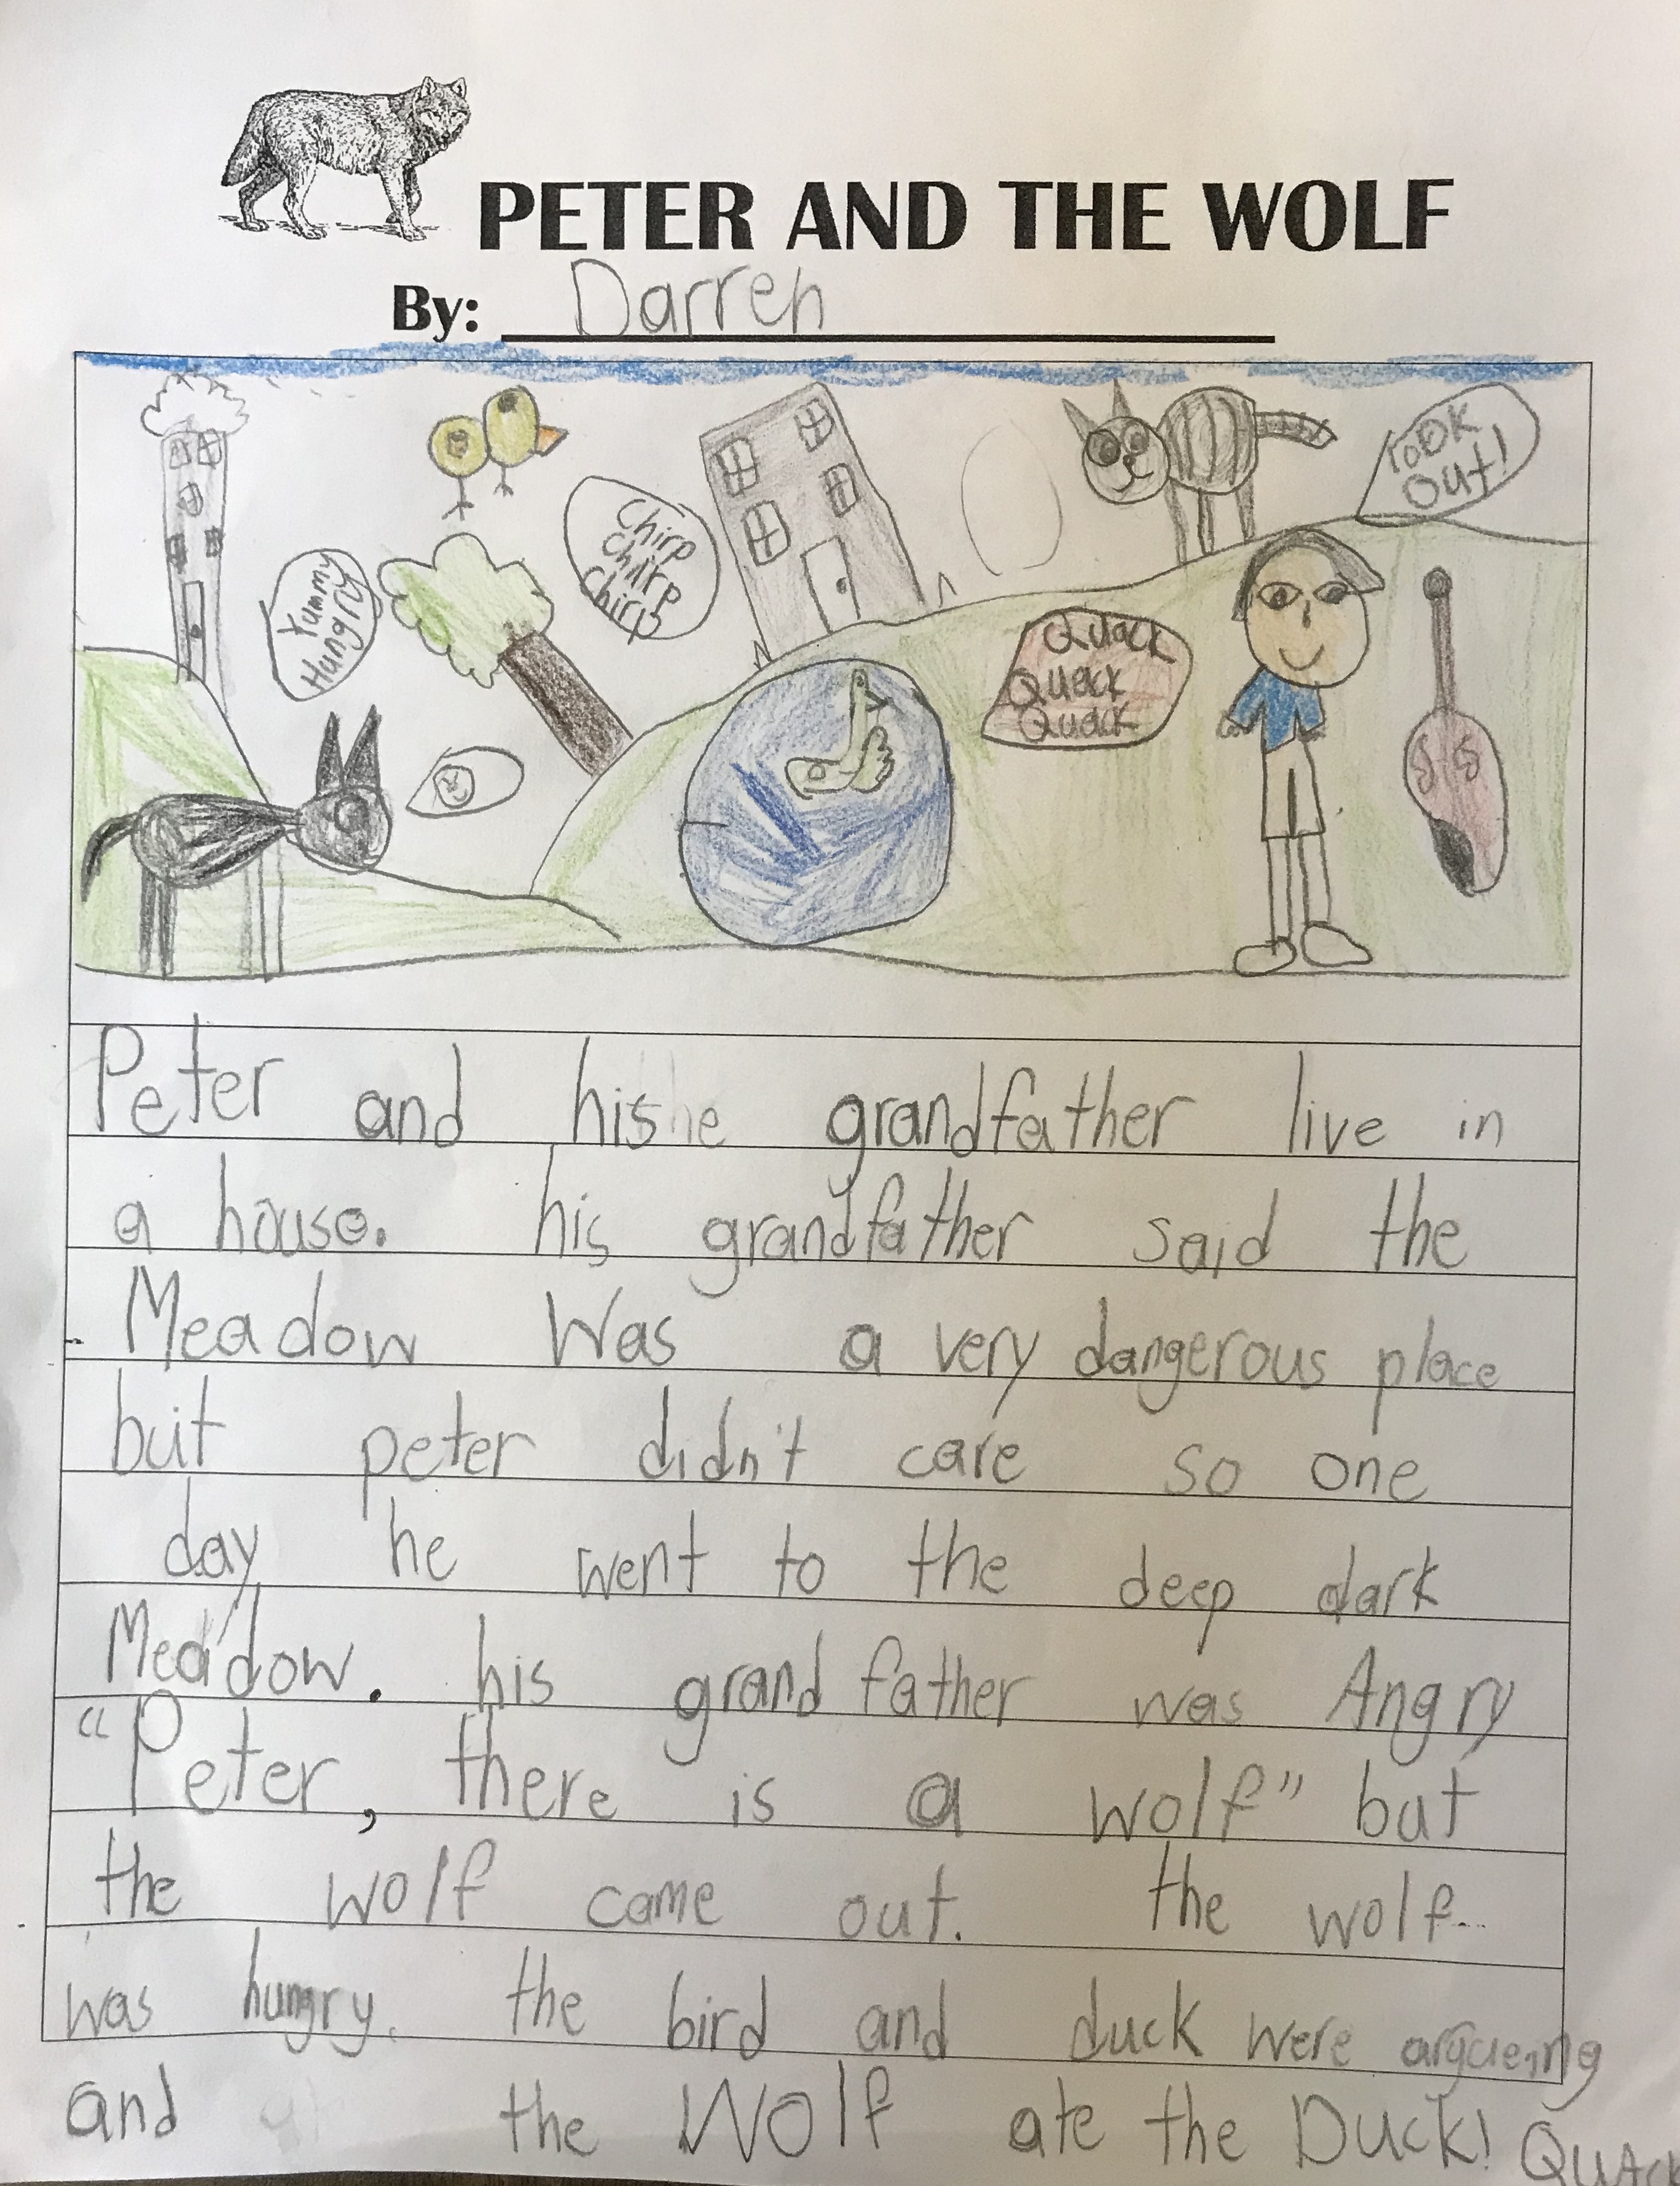 PETER AND THE WOLF
By: Darren
Yummy
Hungry
Chirp
Chirp
Chirp
Quack
Quack
Quack
rook
Out!
Peter and his grandfather live in
a house. his grandfather said the
Meadow Was a very dangerous place
but peter didn't care so one
day he went to the deep dark
Meadow. his grandfather was Angry
"Peter, there is a wolf" but
the wolf came out. the wolf
was hungry. the bird and duck were argueing
and the Wolf ate the Duck! Quack